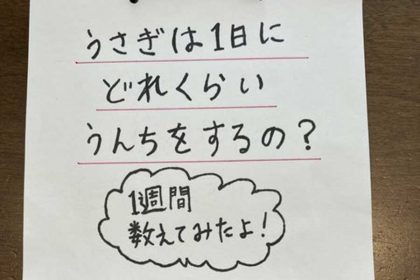 うさぎは1日に
どれくらい
うんちをするの？
1週間
数えてみたよ！